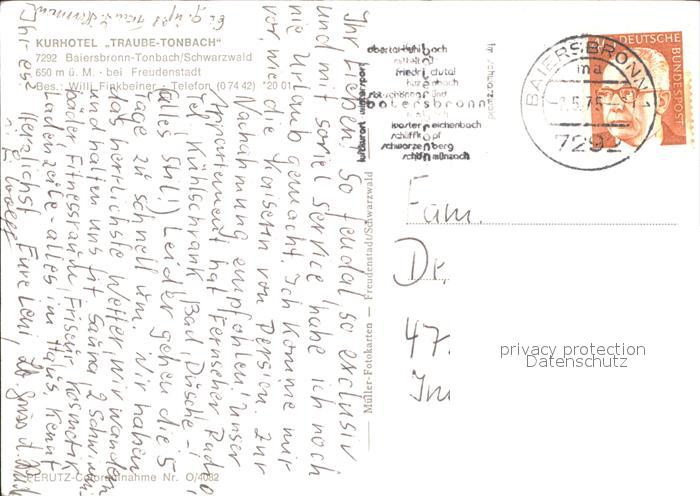 KURHOTEL „TRAUBE-TONBACH"
7292 Baiersbronn-Tonbach/Schwarzwald
650 m ü. M. - bei Freudenstadt
Bes.: Willi Finkbeiner - Telefon (07442) 2001
Ihr Lieben! So feudal, so exclusiv
und mit soviel Service habe ich noch
nie Urlaub gemacht. Ich komme mir
vor, wie die Kaiserin von Persien. Zur
Nachahmung empfohlen! Unser
Appartement hat Fernseher, Radio,
Tel., Kühlschrank, Bad, Dusche -
alles Stil!) Leider gehen die 5
Tage zu schnell um. Wir haben
das herrlichste Wetter, wir wandern
und halten uns fit. Sauna, 2 Schwimm-
bäder, Fitnessraum, Friseur, Kosmetik
Ladenzeile - alles im Haus. Kennt
Ihr es?
Herzlichst Eure Leni,
PERUTZ-Coloraufnahme Nr. O/4082
Müller-Fotokarten — Freudenstadt/Schwarzwald
luftkurort wintersport
obertal-buhlbach
mitteltal
friedrichstal
huzenbach
röt-schönegründ
baiersbronn
klosterreichenbach
schliffkopf
schwarzenberg
schönmünzach
im schwarzwald
BAIERSBRONN 1
ma
7292
DEUTSCHE
BUNDESPOST
Fam.
Dr.
47.
Im
privacy protection
Datenschutz